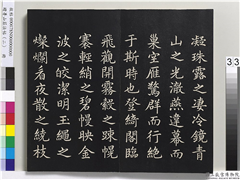 凝珠露之凄冷鏡青
山之光澈燕違幕而
巢室雁驚群而行絶
于斯時也登綺閣臨
飛觀開霧縠之疎幌
褰輕綃之碧幔映金
波之皎潔明玉繩之
燦爛看夜散之繞枝
33